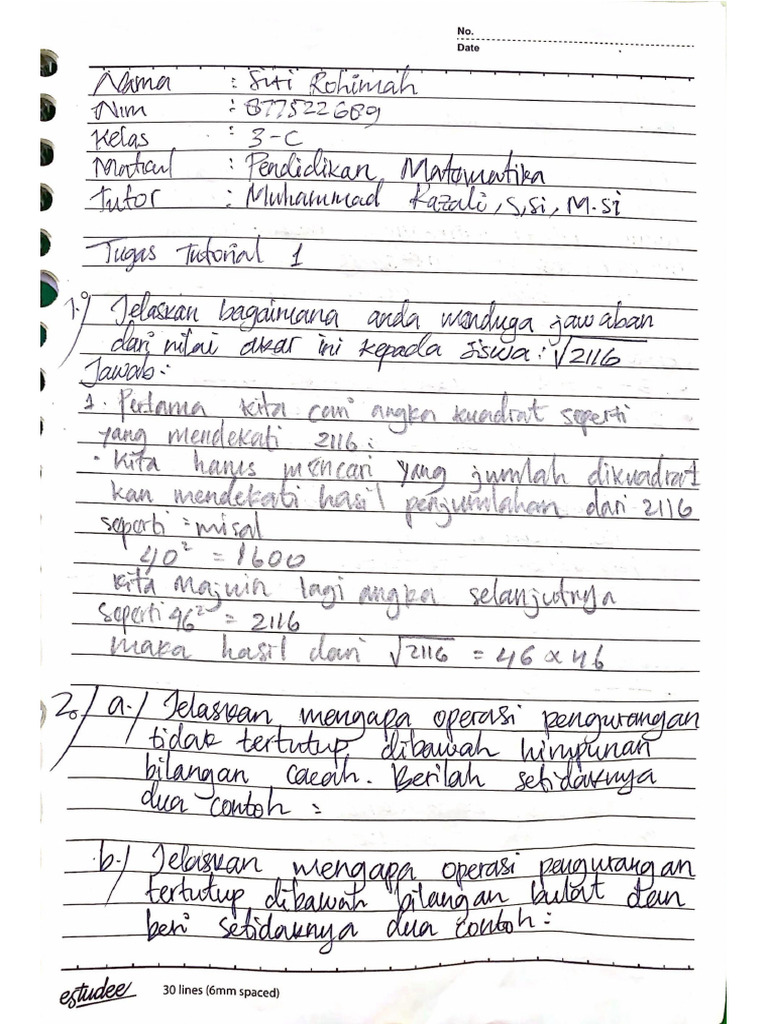 No.
Date
Nama : Siti Rohimah
Nim : 877522689
Kelas : 3-C
Matkul : Pendidikan Matematika
Tutor : Muhammad Razali, S,Si, M.si
Tugas Tutorial 1
1.) Jelaskan bagaimana anda menduga jawaban
dari nilai akar ini kepada siswa: √2116
Jawab:
1. Pertama kita cari angka kuadrat seperti
yang mendekati 2116:
• Kita harus mencari yang jumlah dikuadrat
kan mendekati hasil penjumlahan dari 2116
seperti = misal
40² = 1600
Kita majuin lagi angka selanjutnya
seperti 46² = 2116
maka hasil dari √2116 = 46 x 46
2.) a.) Jelaskan mengapa operasi pengurangan
tidak tertutup dibawah himpunan
bilangan cacah. Berilah setidaknya
dua contoh :
b.) Jelaskan mengapa operasi pengurangan
tertutup dibawah bilangan bulat dan
beri setidaknya dua contoh :
estudee 30 lines (6mm spaced)